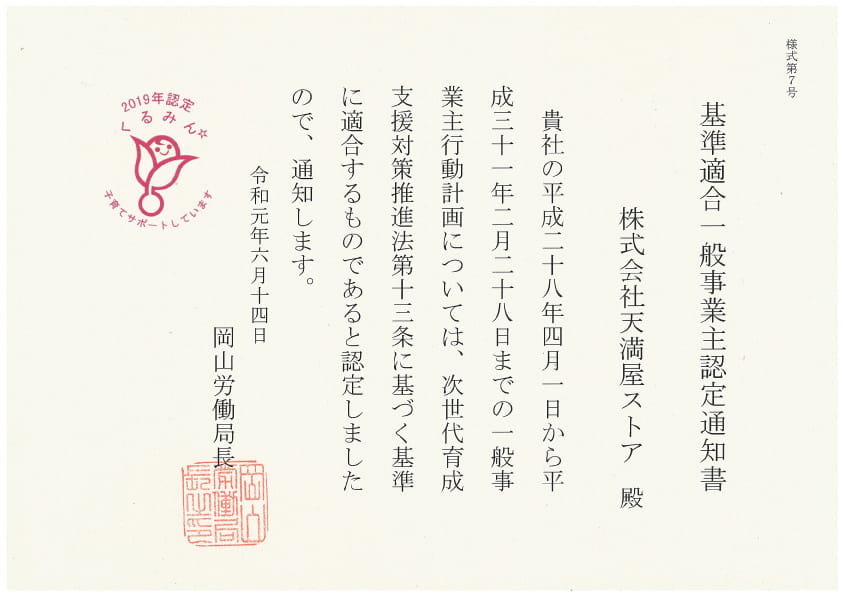 様式第７号
基準適合一般事業主認定通知書
株式会社天満屋ストア　殿
貴社の平成二十八年四月一日から平
成三十一年二月二十八日までの一般事
業主行動計画については、次世代育成
支援対策推進法第十三条に基づく基準
に適合するものであると認定しました
ので、通知します。
令和元年六月十四日
岡山労働局長
岡山
労働局
長之印
2019年認定
くるみん☆
子育てサポートしています